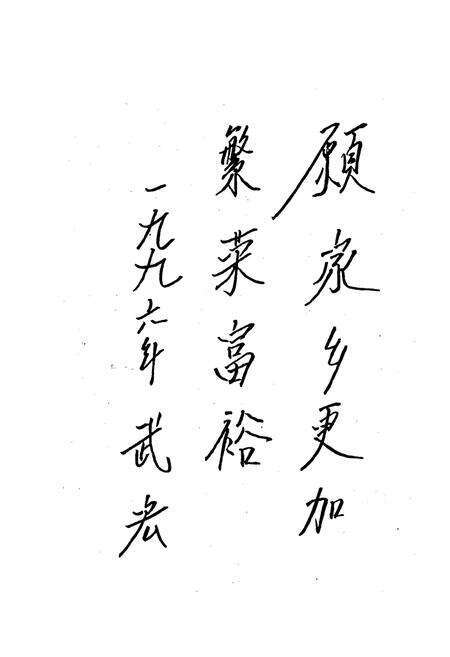 愿家乡更加
繁荣富裕
一九九六年 武宏